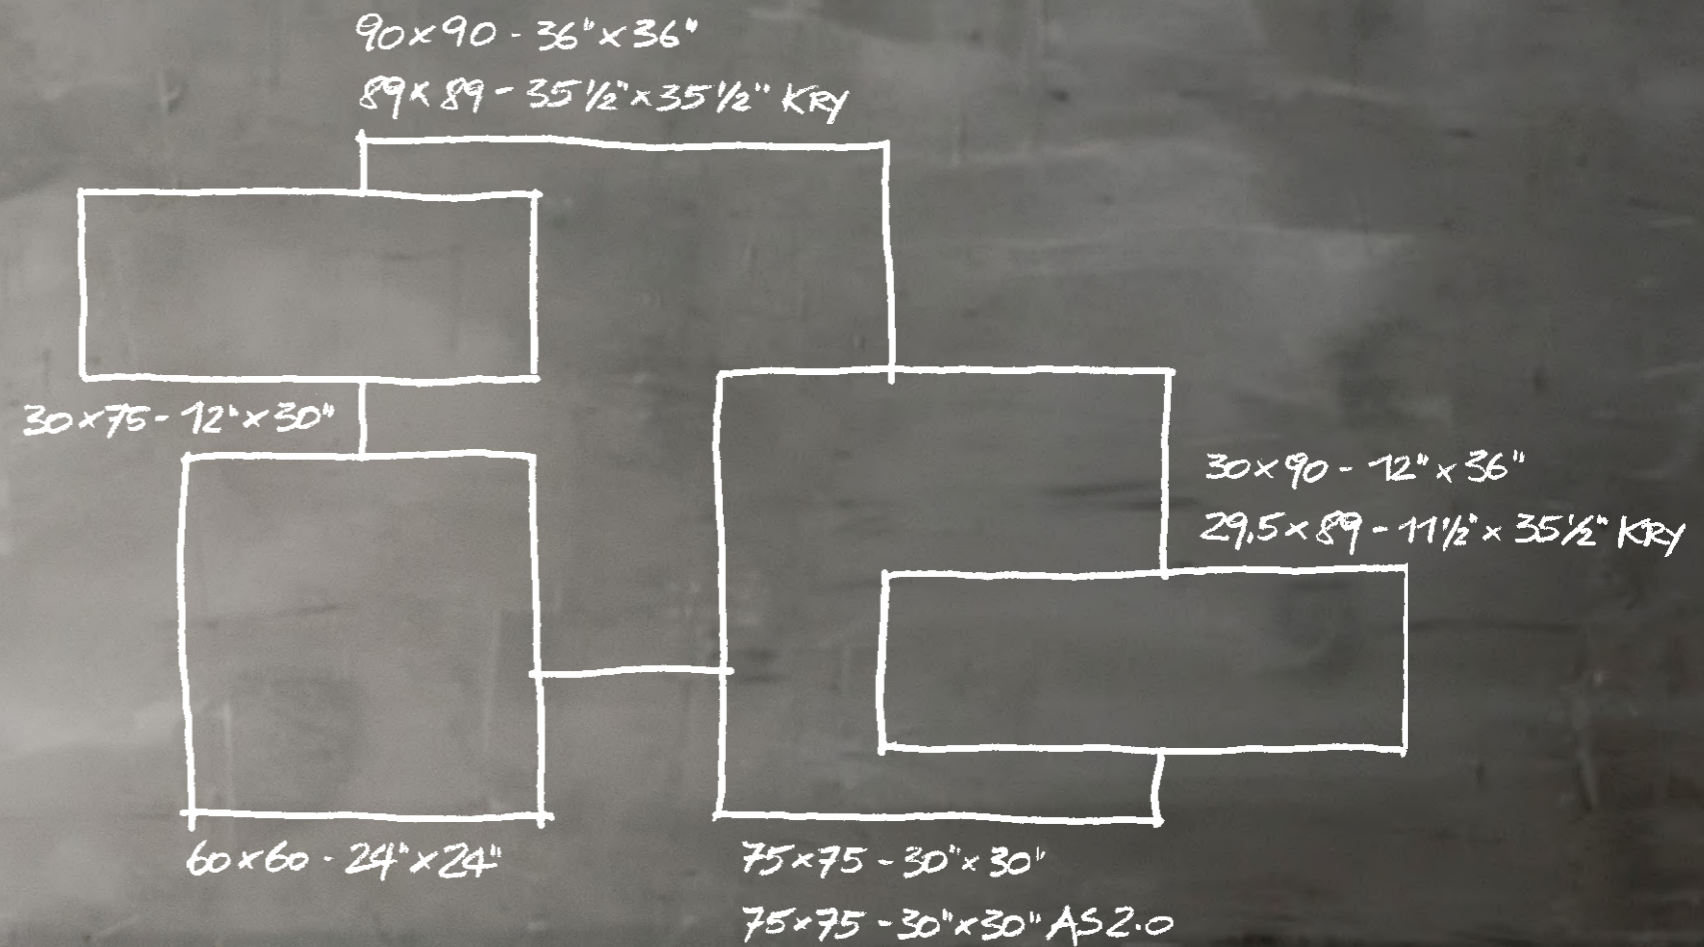 90x90 - 36"x36"
89x89 - 35 1/2"x35 1/2" KRY
30x75 - 12"x30"
30x90 - 12"x36"
29,5x89 - 11 1/2"x35 1/2" KRY
60x60 - 24"x24"
75x75 - 30"x30"
75x75 - 30"x30" AS 2.0